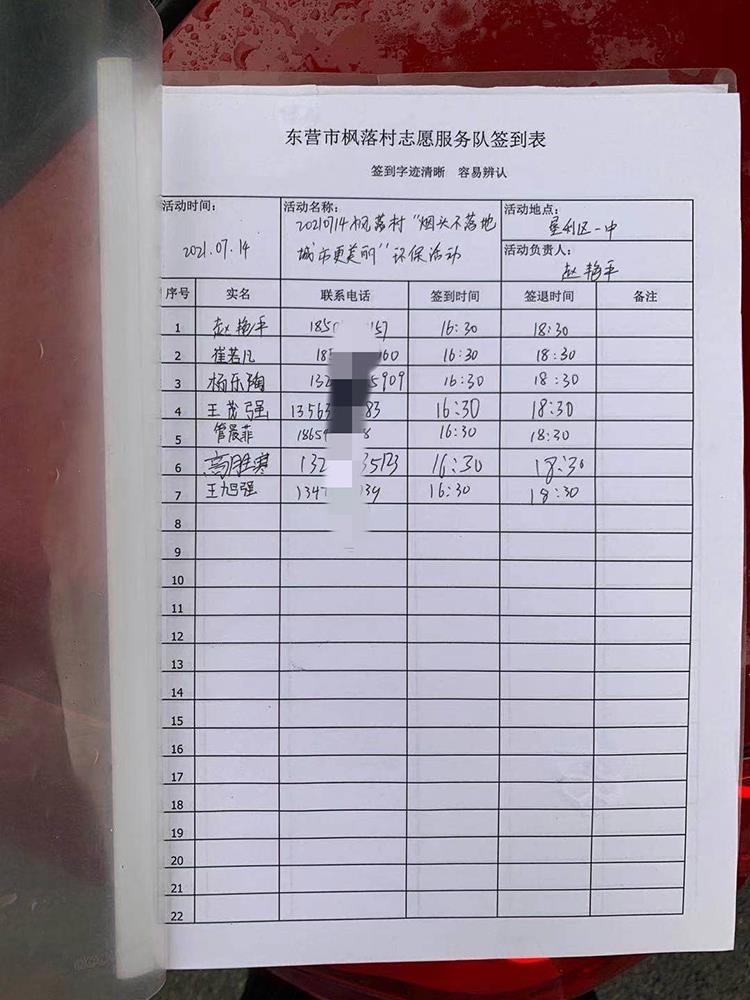 东营市枫落村志愿服务队签到表
签到字迹清晰 容易辨认
活动时间: 2021.07.14
活动名称: 20210714枫落村“烟头不落地
城市更美丽”环保活动
活动地点: 垦利区一中
活动负责人: 赵艳平
序号 实名 联系电话 签到时间 签退时间 备注
1 赵艳平 185 157 16:30 18:30
2 崔若凡 18 60 16:30 18:30
3 杨乐陶 132 5909 16:30 18:30
4 王茂强 13563 83 16:30 18:30
5 管晨菲 1865 8 16:30 18:30
6 高胜寒 132 3513 16:30 18:30
7 王旭强 134 039 16:30 18:30
8
9
10
11
12
13
14
15
16
17
18
19
20
21
22